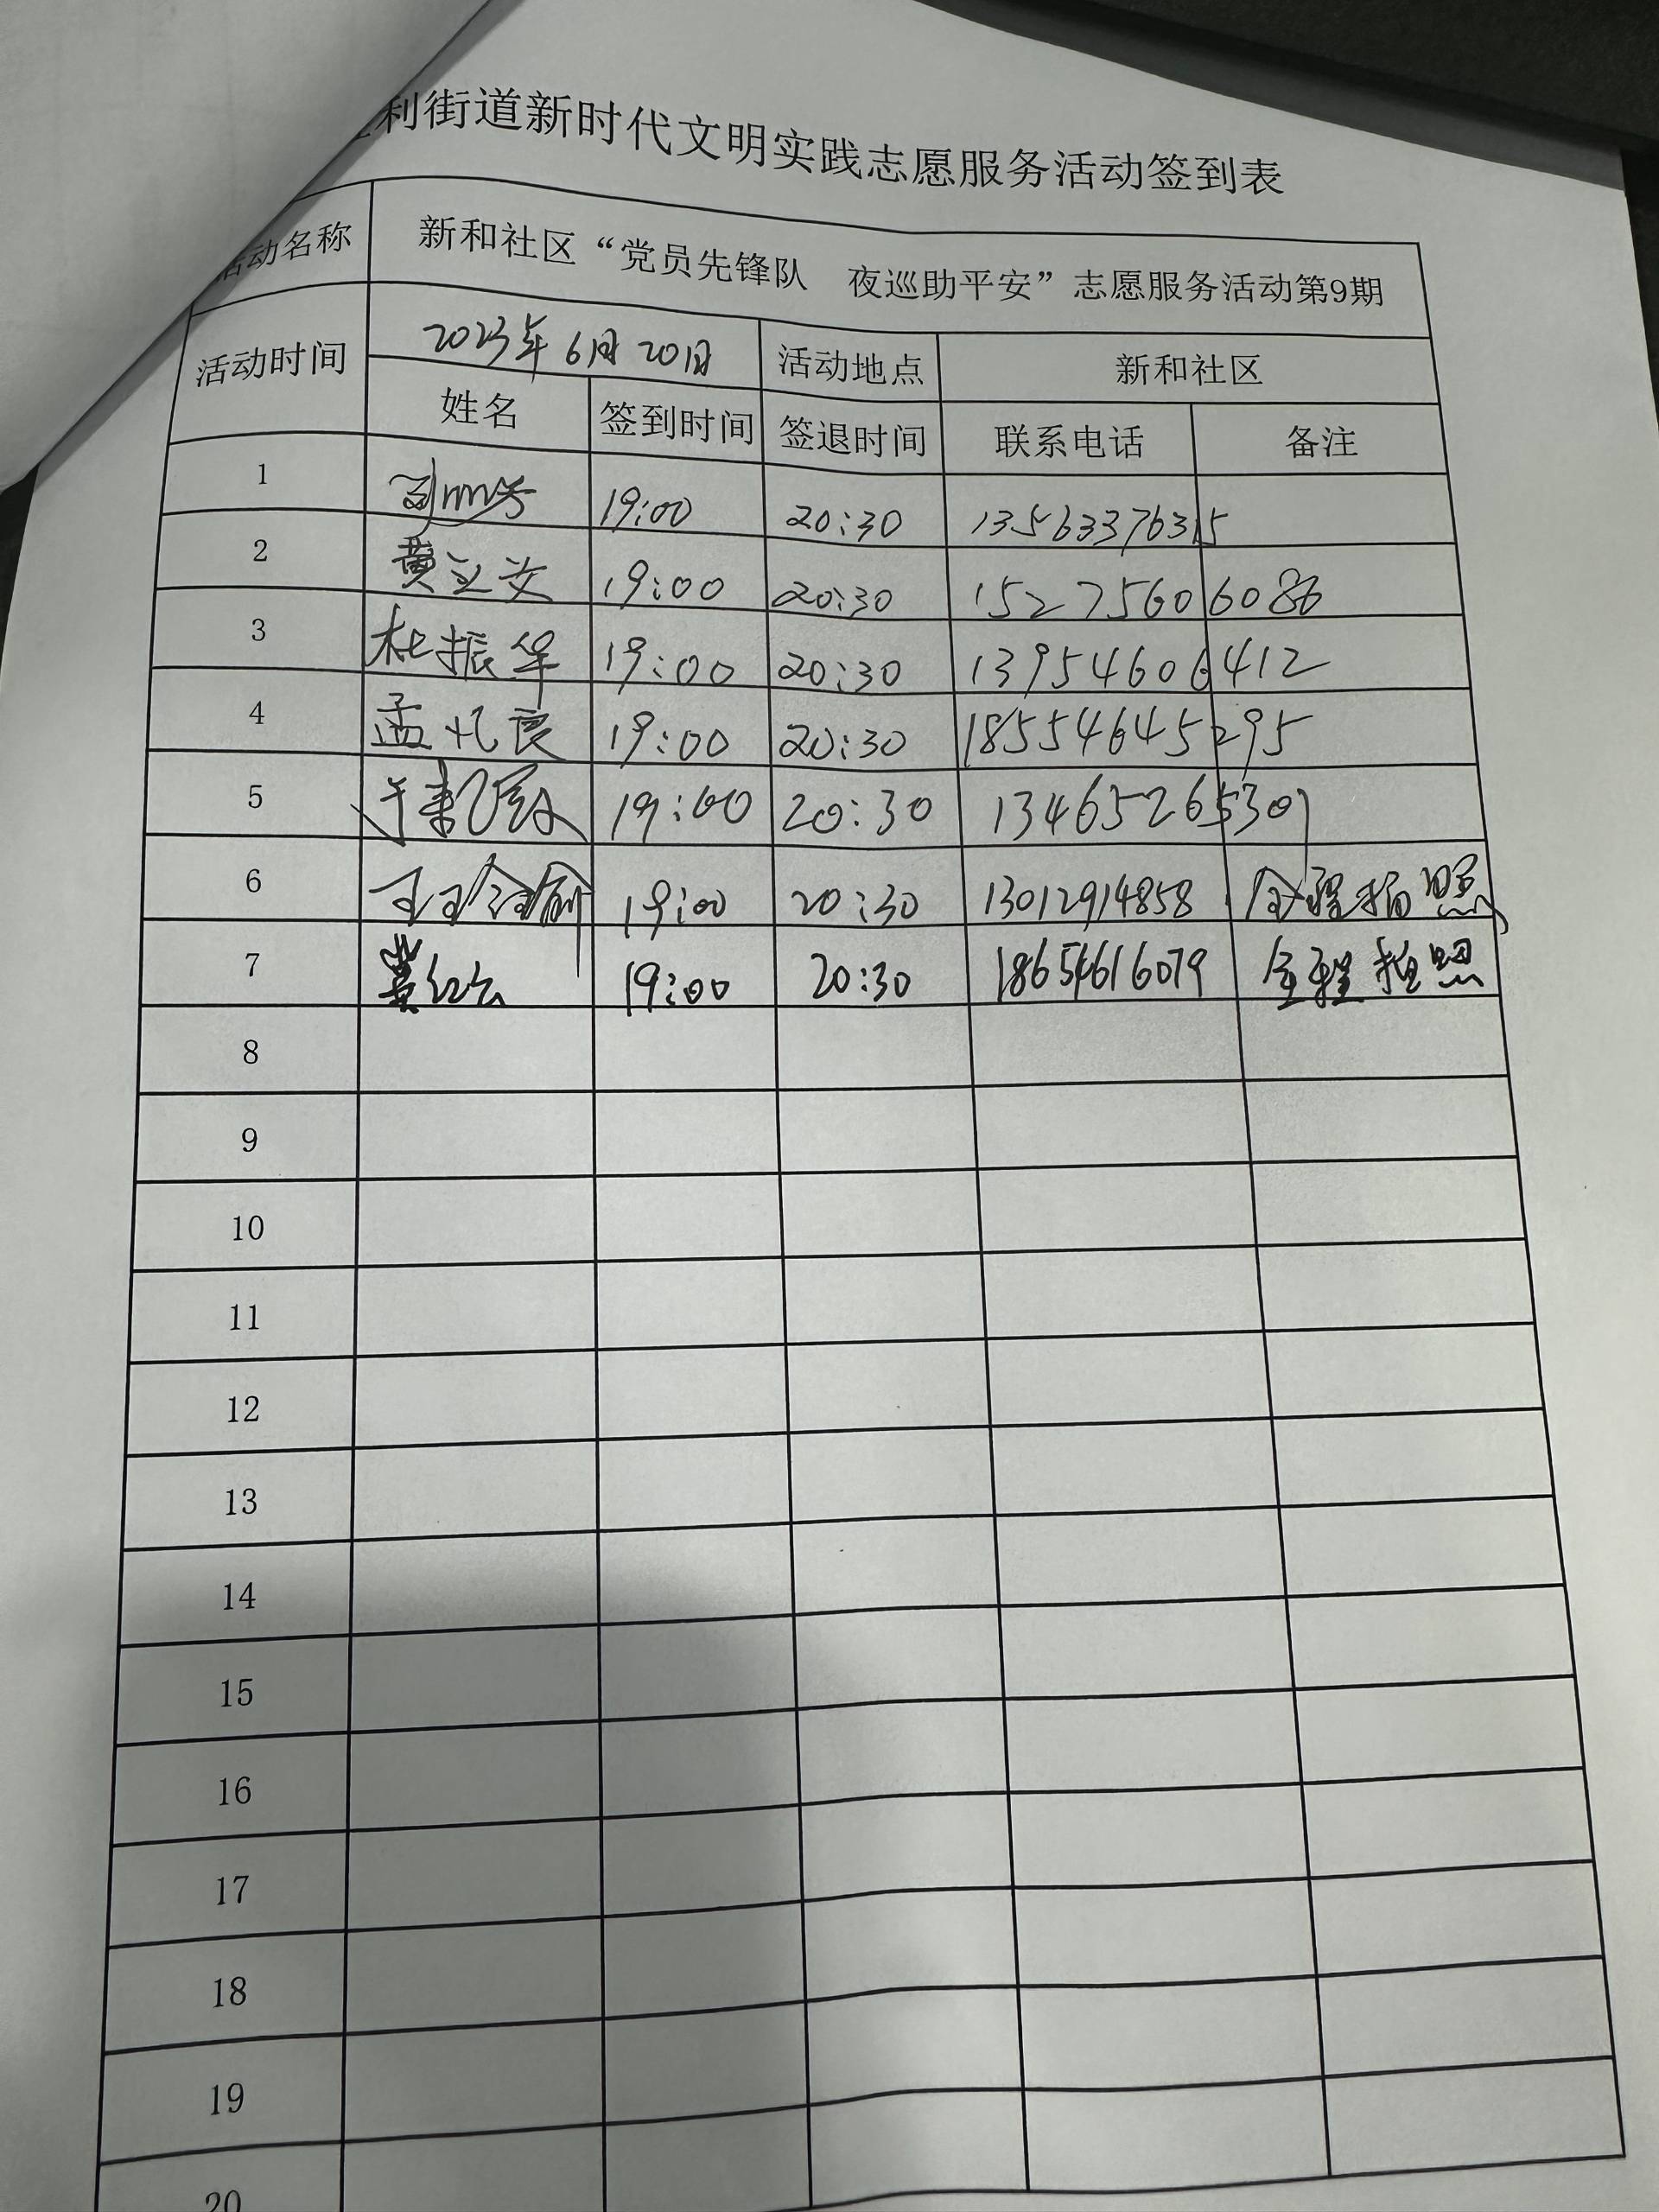 利街道新时代文明实践志愿服务活动签到表
活动名称 新和社区“党员先锋队 夜巡助平安”志愿服务活动第9期
活动时间 2023年6月20日 活动地点 新和社区
姓名 签到时间 签退时间 联系电话 备注
1 19:00 20:30 13563376315
2 黄立安 19:00 20:30 15275606086
3 杜振华 19:00 20:30 13954606412
4 孟凡良 19:00 20:30 18554645295
5 19:00 20:30 13465265307
6 19:00 20:30 13012914858 全程拍照
7 黄红云 19:00 20:30 18654616079 全程拍照
8
9
10
11
12
13
14
15
16
17
18
19
20